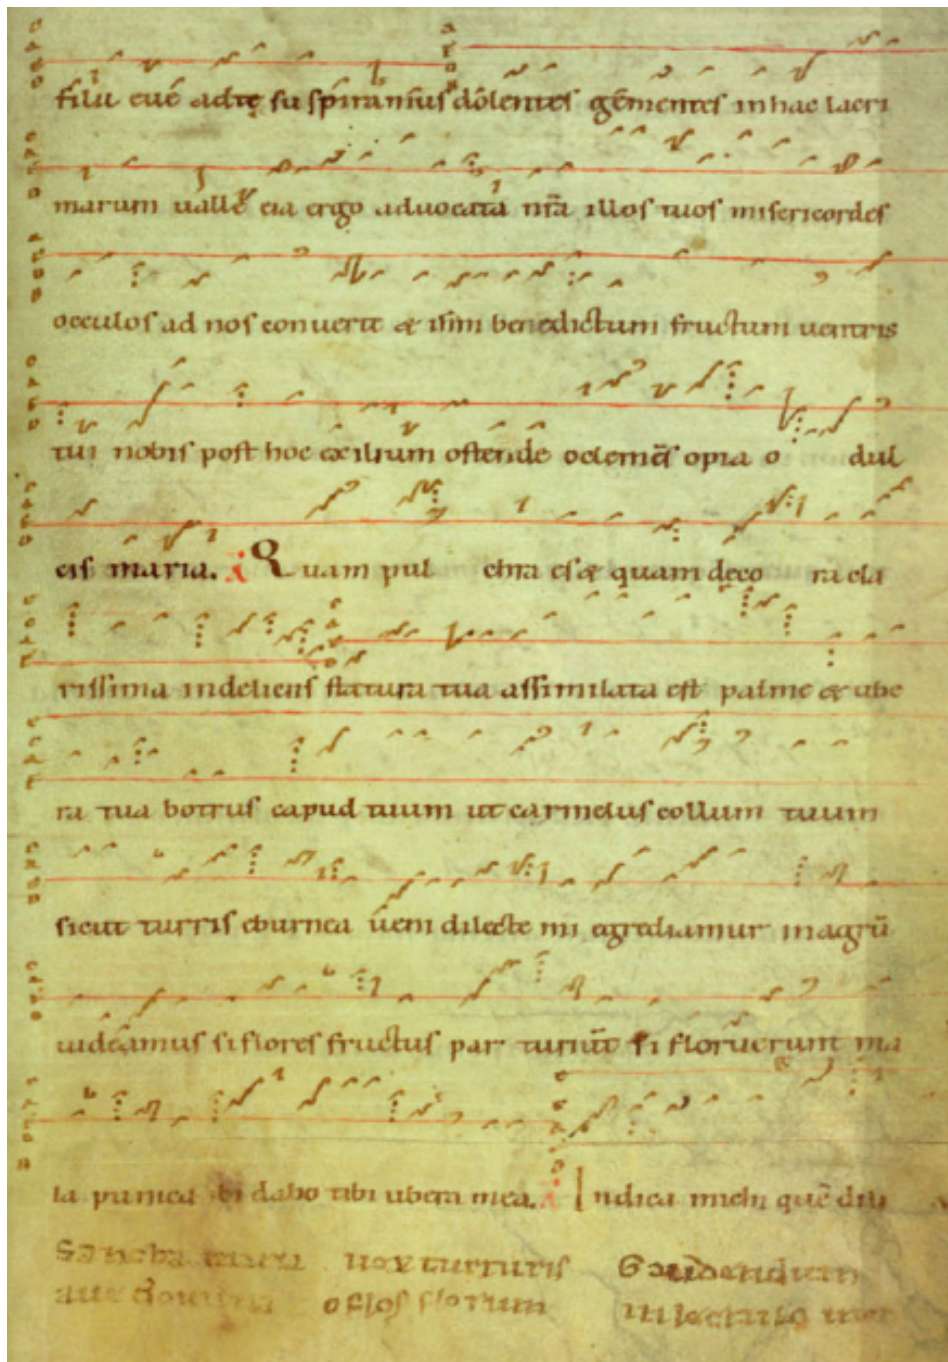 filii eué ad tę suspirámus dolentes gementes in hac lacri
marum ualle eia ergo aduocata nr̄a illos tuos misericordes
occulos ad nos conuerte & ih̄m benedictum fructum uentris
tui nobis post hoc exilium ostende o clemēs o pia o dul
cis maria. A Quam pul chra es & quam deco ra cla
rissima in deliciis statura tua assimilata est palme & ube
ra tua botrus capud tuum ut carmelus collum tuum
sicut turris eburnea ueni dilecte mi egrediamur in agrū
uideamus si flores fructus par turiūt si floruerunt ma
la punica ibi dabo tibi ubera mea. A Indica michi quē dili
Sancta maria uox turturis Gaudendum
aue domina o flos florum in lectulo meo